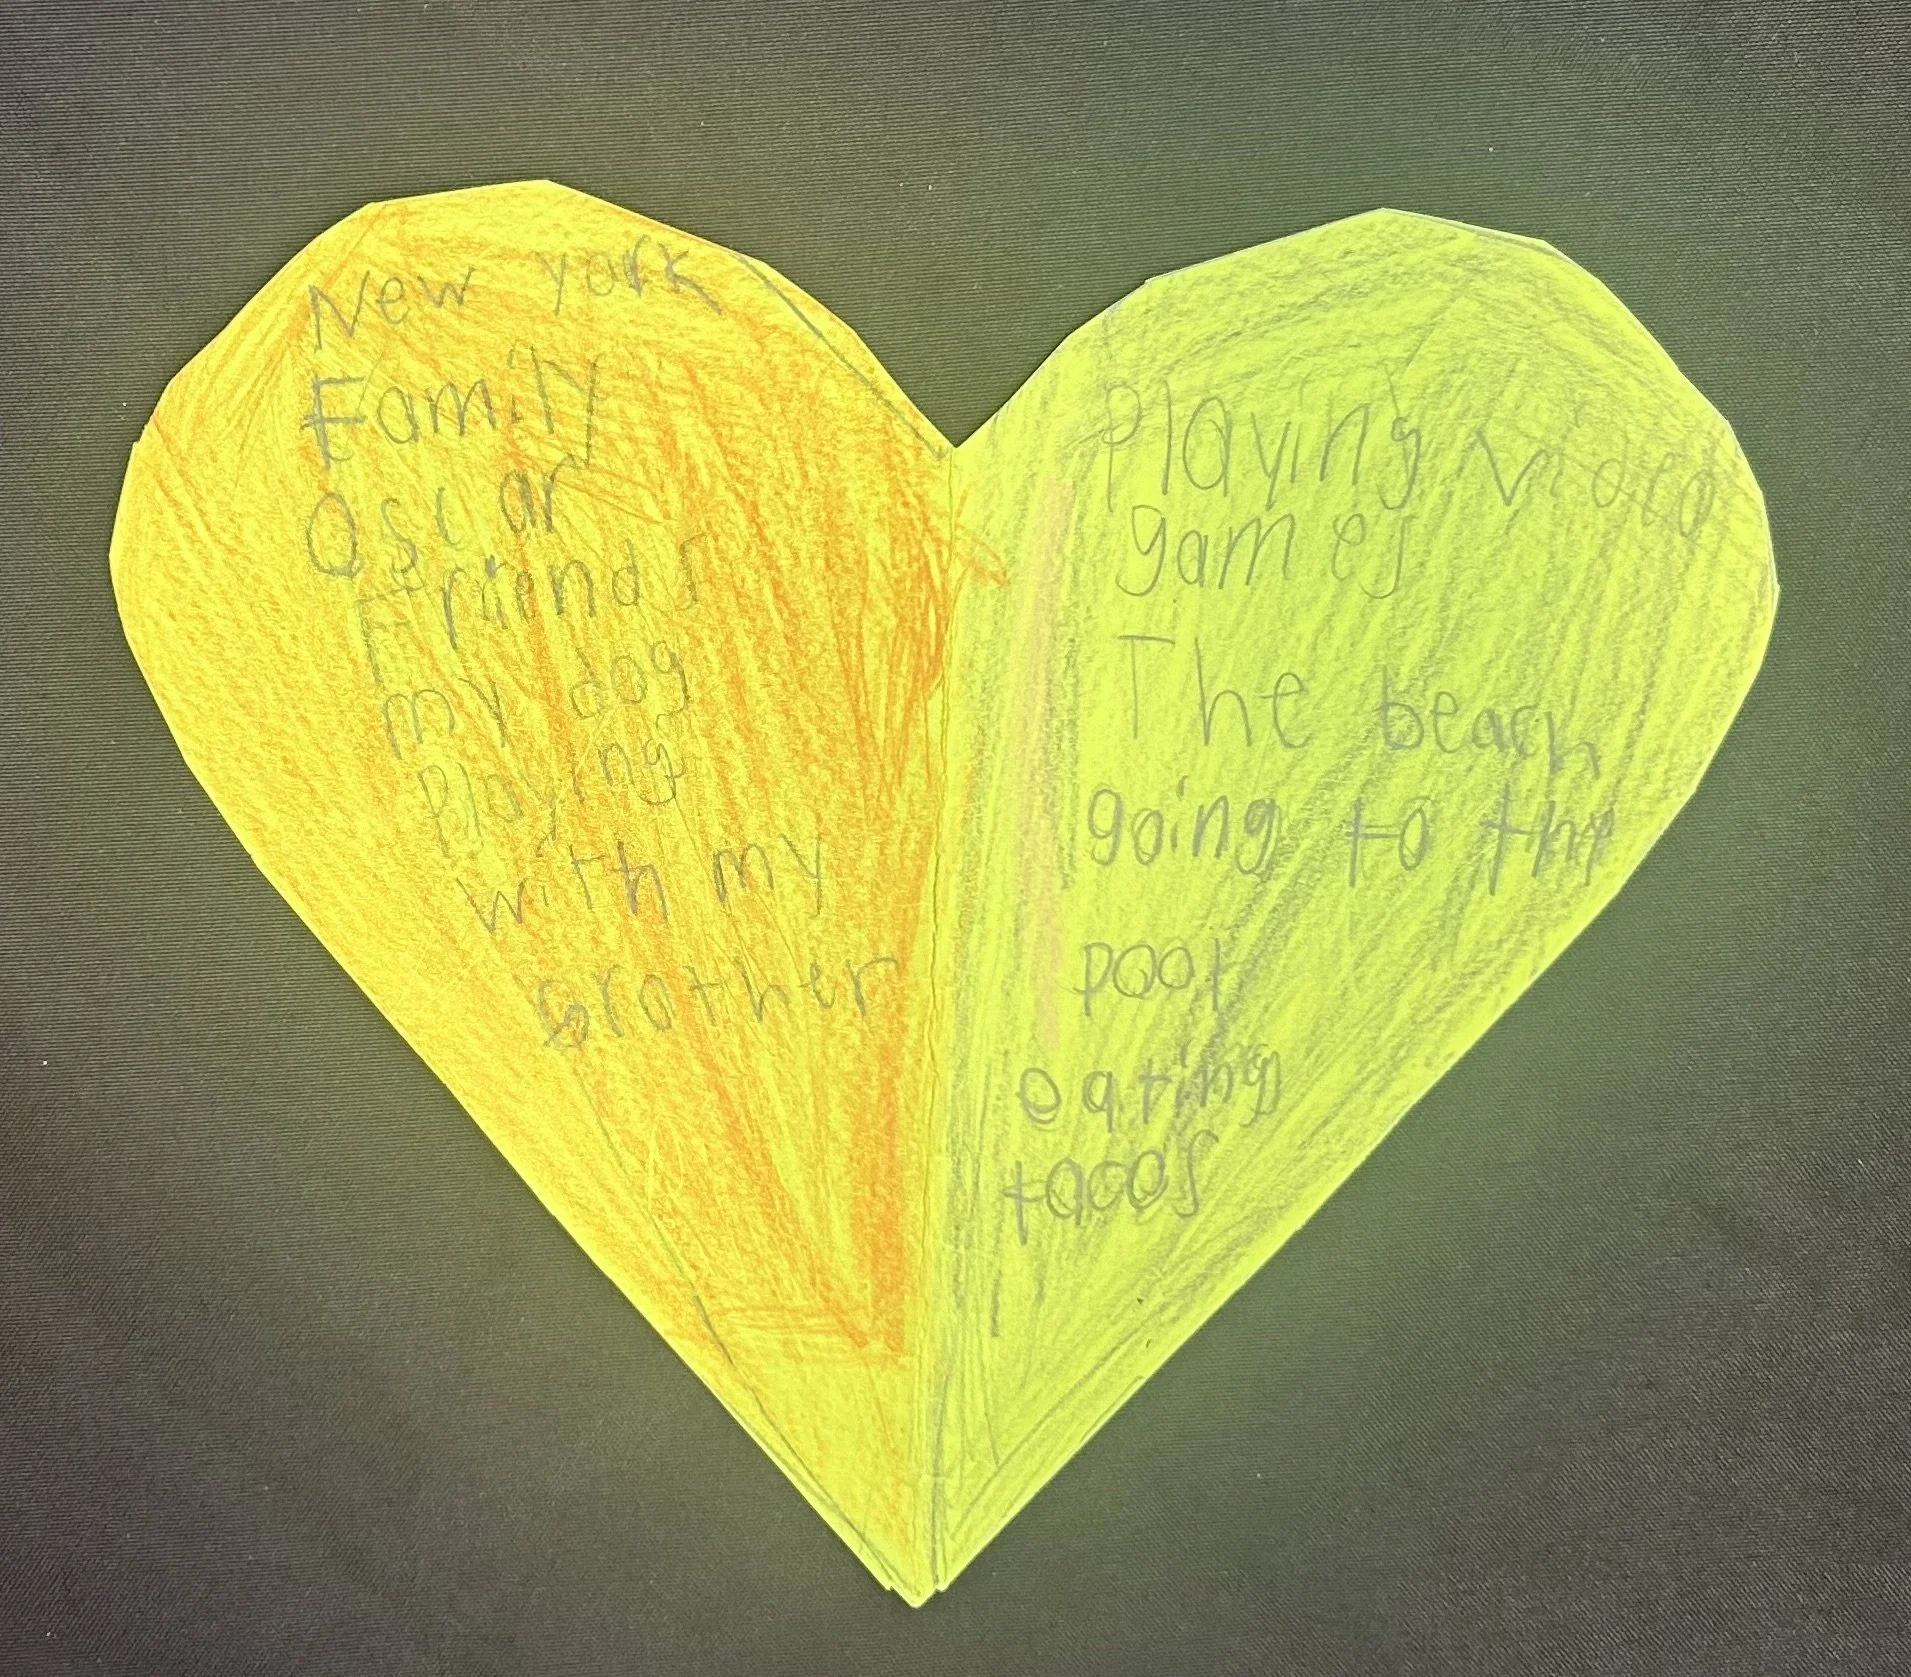 New york
Family
Oscar
Friends
my dog
Playing
with my
Brother
Playing video
games
The beach
going to the
pool
eating
tacos